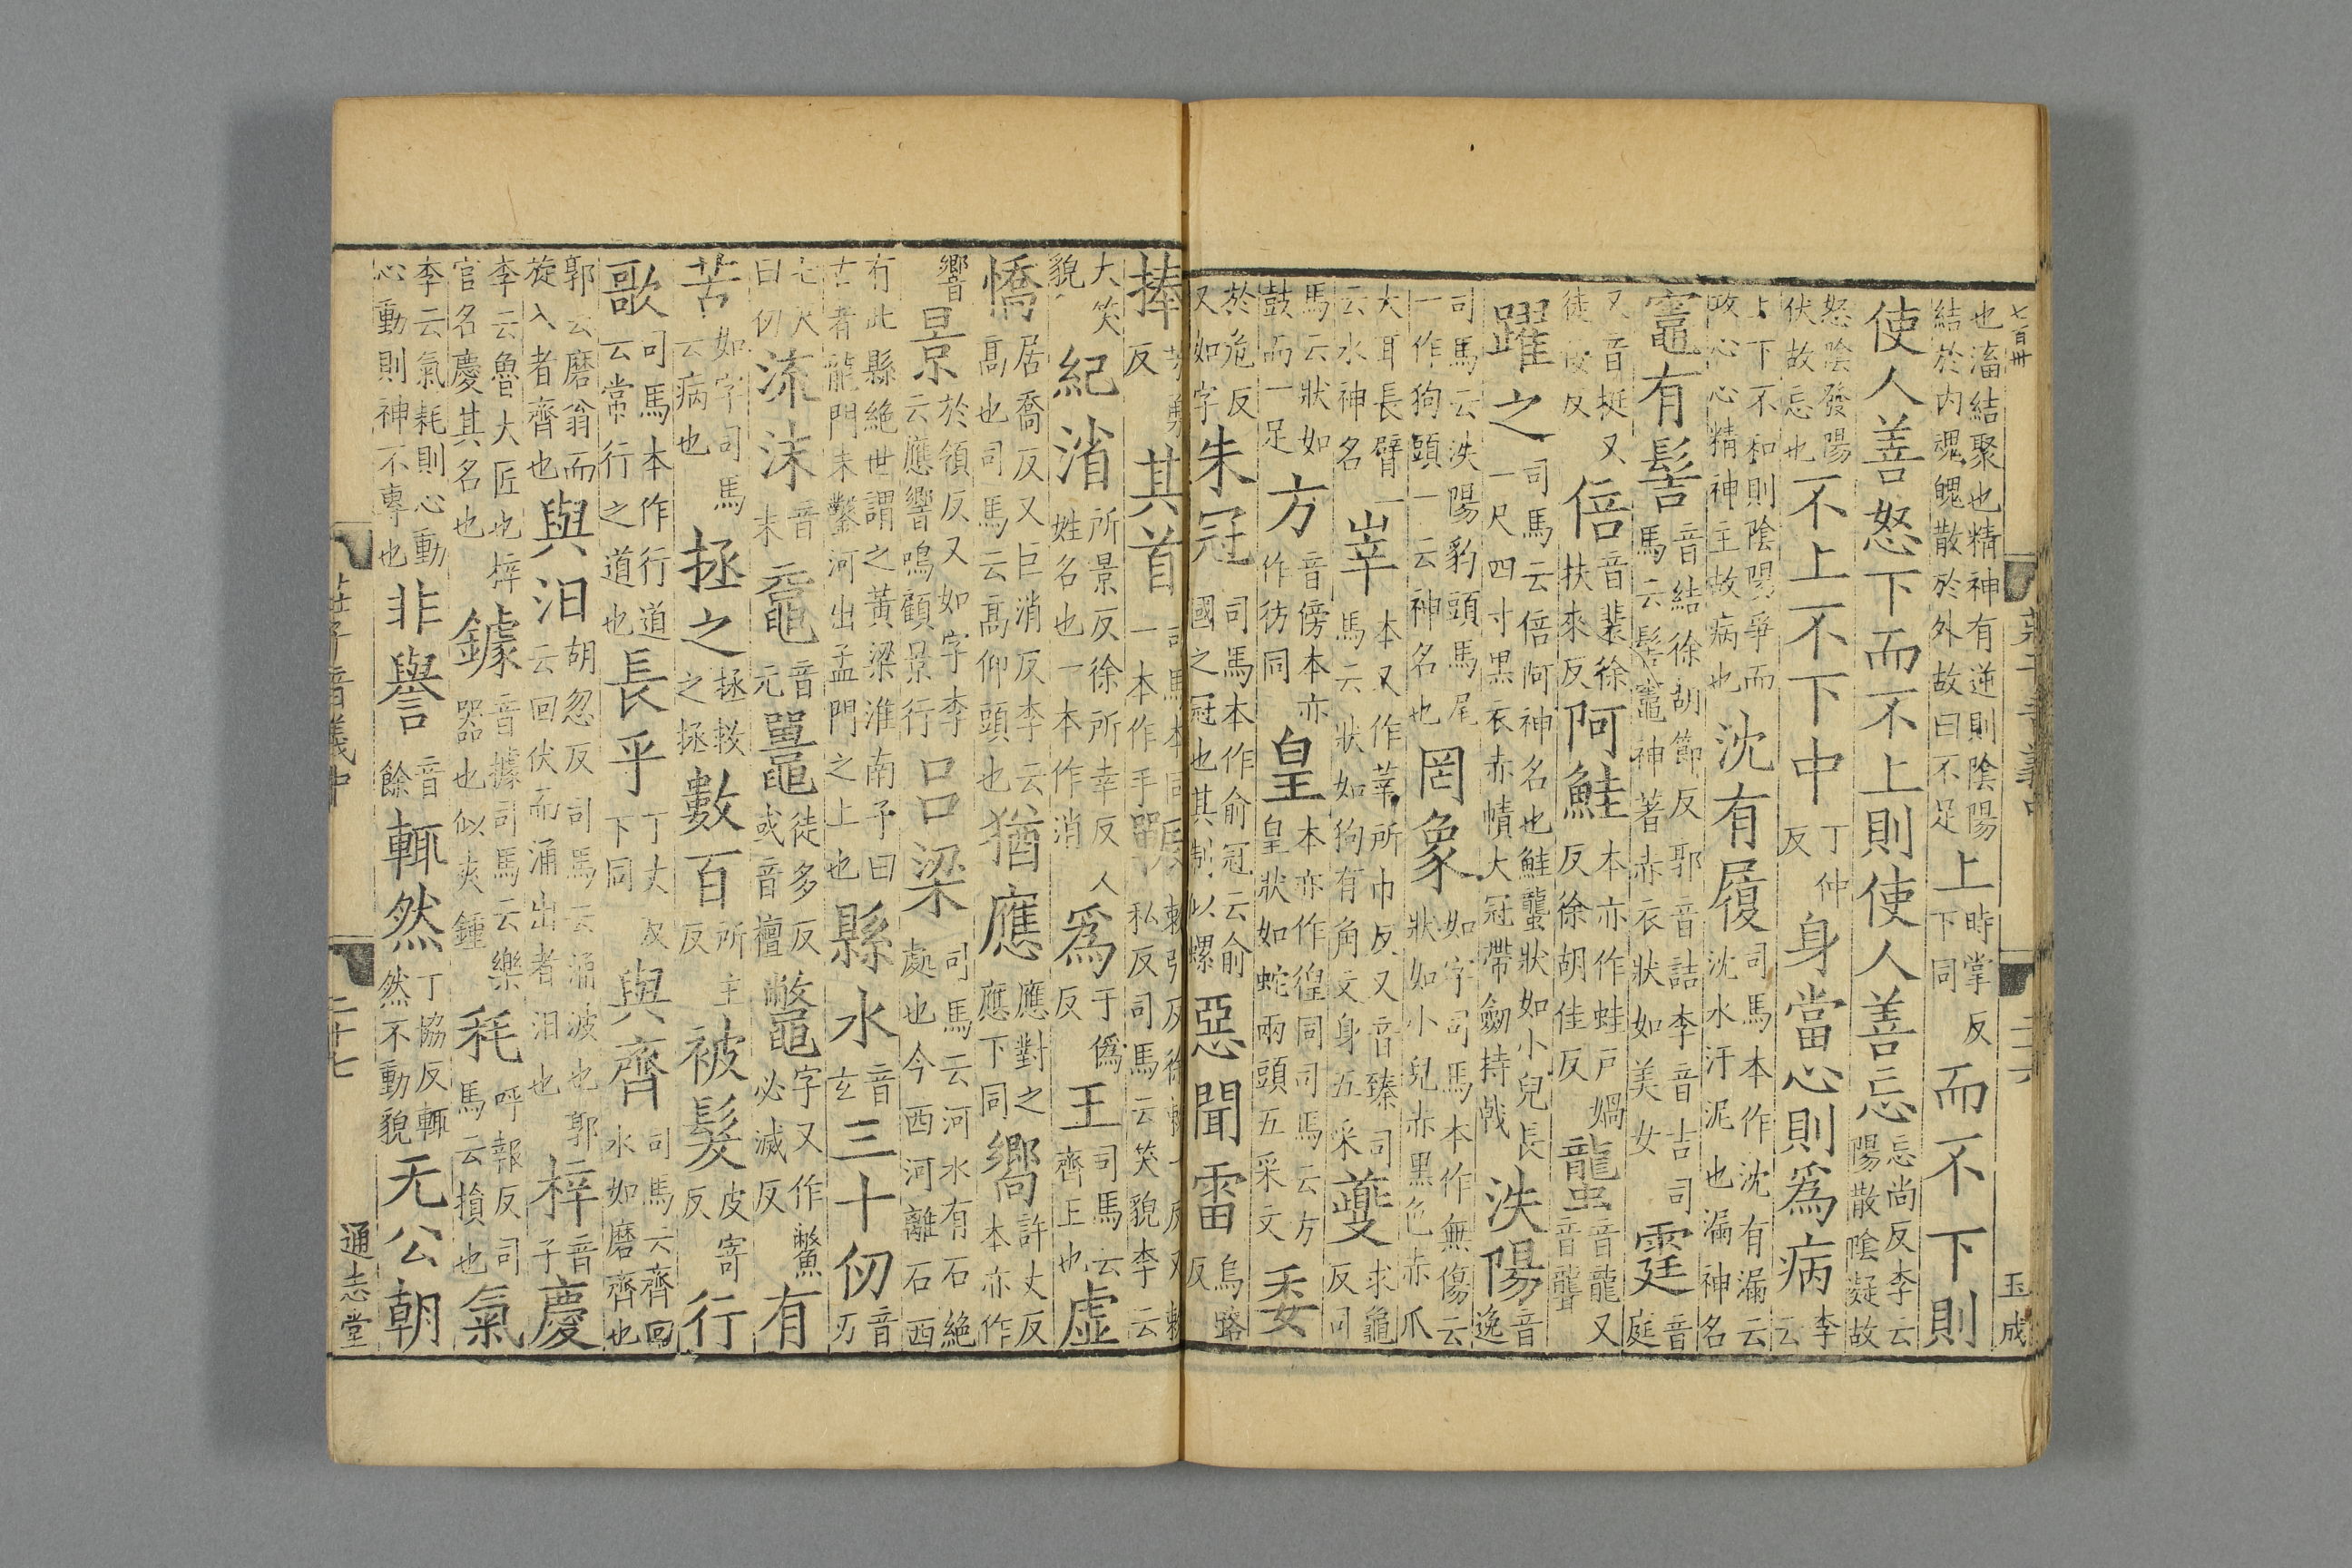 七百卅
玉成
也畜結聚也精神有逆則陰陽結於内魂魄散於外故曰不足上時掌反下同而不下則
使人善怒下而不上則使人善忘忘尚反李云陽散陰凝故
怒陰發陽伏故忘也不上不下中丁仲反身當心則爲病李云
上下不和則陰陽爭而攻心心精神主故病也沈有履司馬本作沈有漏云沈水汙泥也漏神名
竈有髻音結徐胡節反郭音詰李音吉司馬云髻竈神著赤衣狀如美女霆音庭
又音挺又徒佞反倍音裴徐扶來反阿鮭本亦作蛙戸媧反徐胡佳反蠪音龍又音聾
躍之司馬云倍阿神名也鮭蠪狀如小兒長一尺四寸黑衣赤幘大冠帶劒持戟泆陽音逸
司馬云泆陽豹頭馬尾一作狗頭一云神名也罔象如字司馬本作無傷云狀如小兒赤黑色赤爪
大耳長臂一云水神名峷本又作莘所巾反又音臻司馬云狀如狗有角文身五采夔求龜反司
馬云狀如鼓而一足方音傍本亦作彷同皇本亦作徨同司馬云方皇狀如蛇兩頭五采文委
於危反又如字朱冠司馬本作俞冠云俞國之冠也其制似螺惡聞雷烏路反
捧芳勇反其首司馬本同一本作手
大笑貌紀渻所景反徐所幸反姓名也一本作消爲于僞反王司馬云齊王也虛
憍居喬反又巨消反李云高也司馬云高仰頭也猶應應對之應下同嚮許丈反本亦作
響景於領反又如字李云應響鳴顧景行吕梁司馬云河水有石絶處也今西河離石西
有此縣絶世謂之黃梁淮南子曰古者龍門未鑿河出孟門之上也縣水音玄三十仞音刃
七尺曰仞流沫音末黿音元鼉徒多反或音檀鼈字又作鱉必滅反有
苦如字司馬云病也拯之拯救之拯數百所主反被髮皮寄反行
歌司馬本作行道云常行之道也長乎丁丈反下同與齊司馬云齊回水如磨齊也
郭云磨翁而旋入者齊也與汩胡忽反司馬云涌波也郭云回伏而涌出者汩也梓音子慶
李云魯大匠也梓官名慶其名也鐻音據司馬云樂器也似夾鍾耗呼報反司馬云損也氣
李云氣耗則心動心動則神不專也非譽音餘輒然丁協反輒然不動貌无公朝
莊子音義中
二十七
通志堂